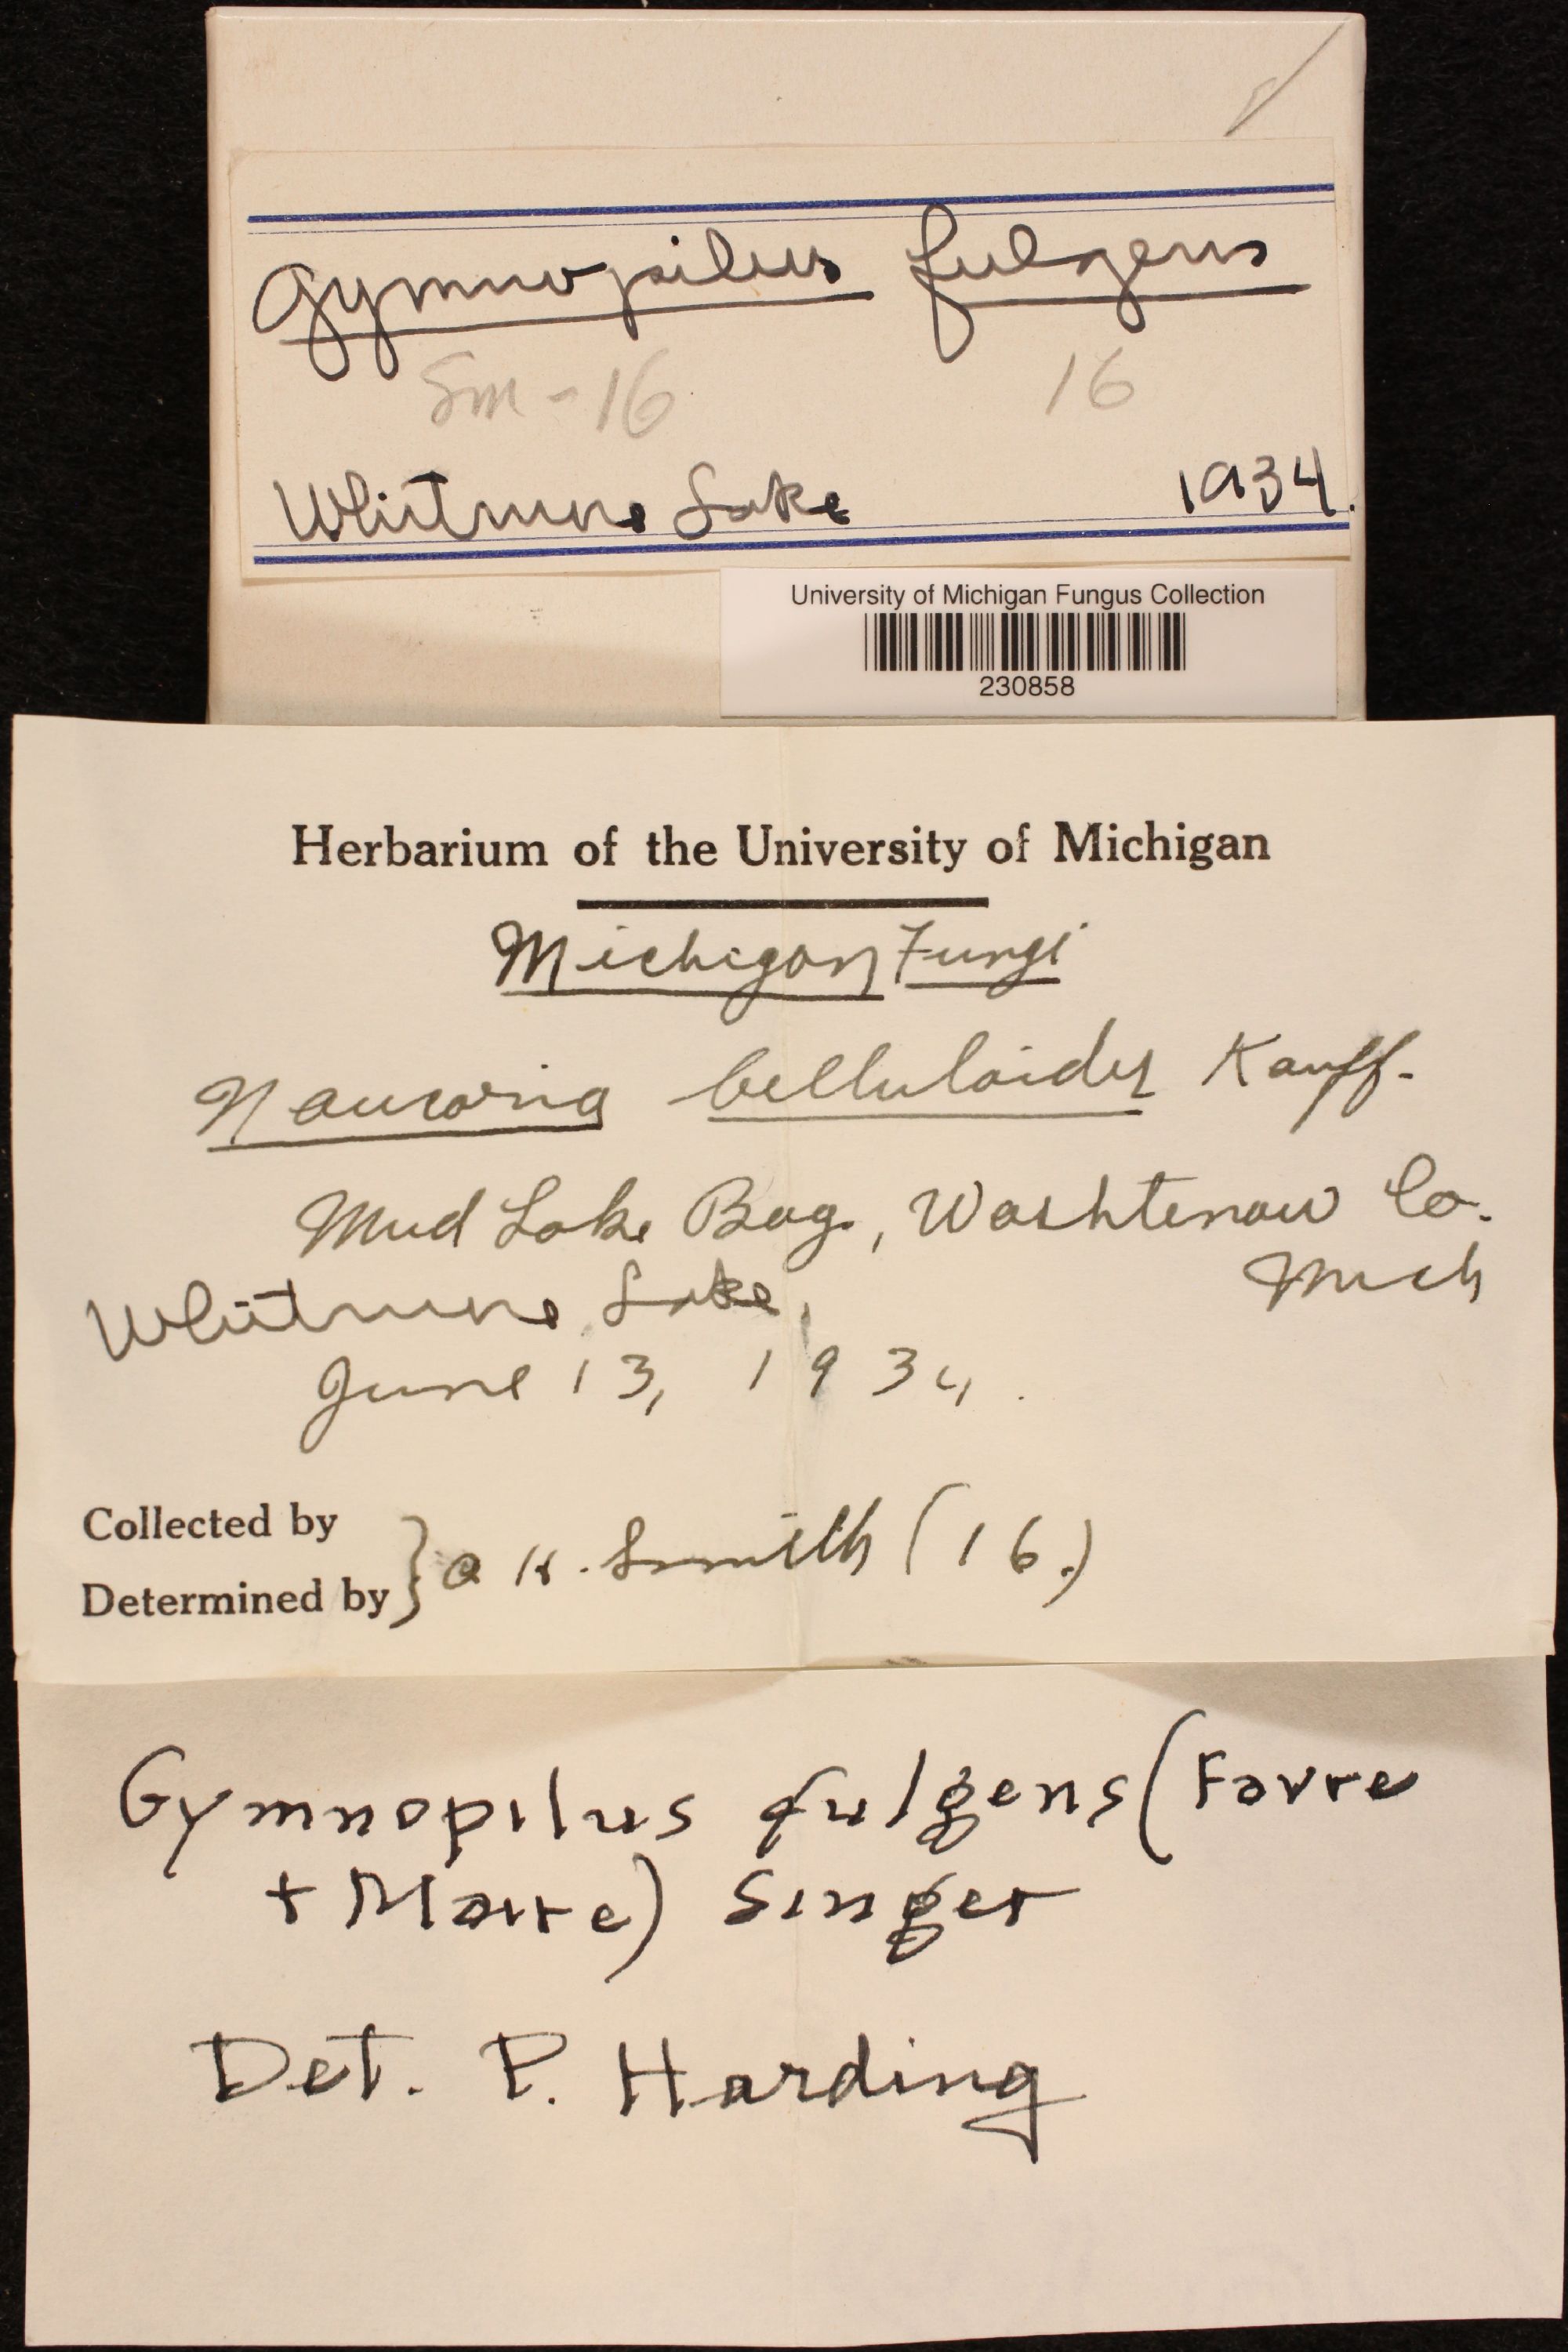 Gymnopilus fulgens
Sm-16 16
Whitmore Lake 1934.
University of Michigan Fungus Collection
230858
Herbarium of the University of Michigan
Michigan Fungi
Naucoria belluloides Kauff.
Mud Lake Bog, Washtenaw Co.
Mich
Whitmore Lake,
June 13, 1934.
Collected by
Determined by } A H. Smith (16.)
Gymnopilus fulgens (Favre
+ Maire) Singer
Det. P. Harding